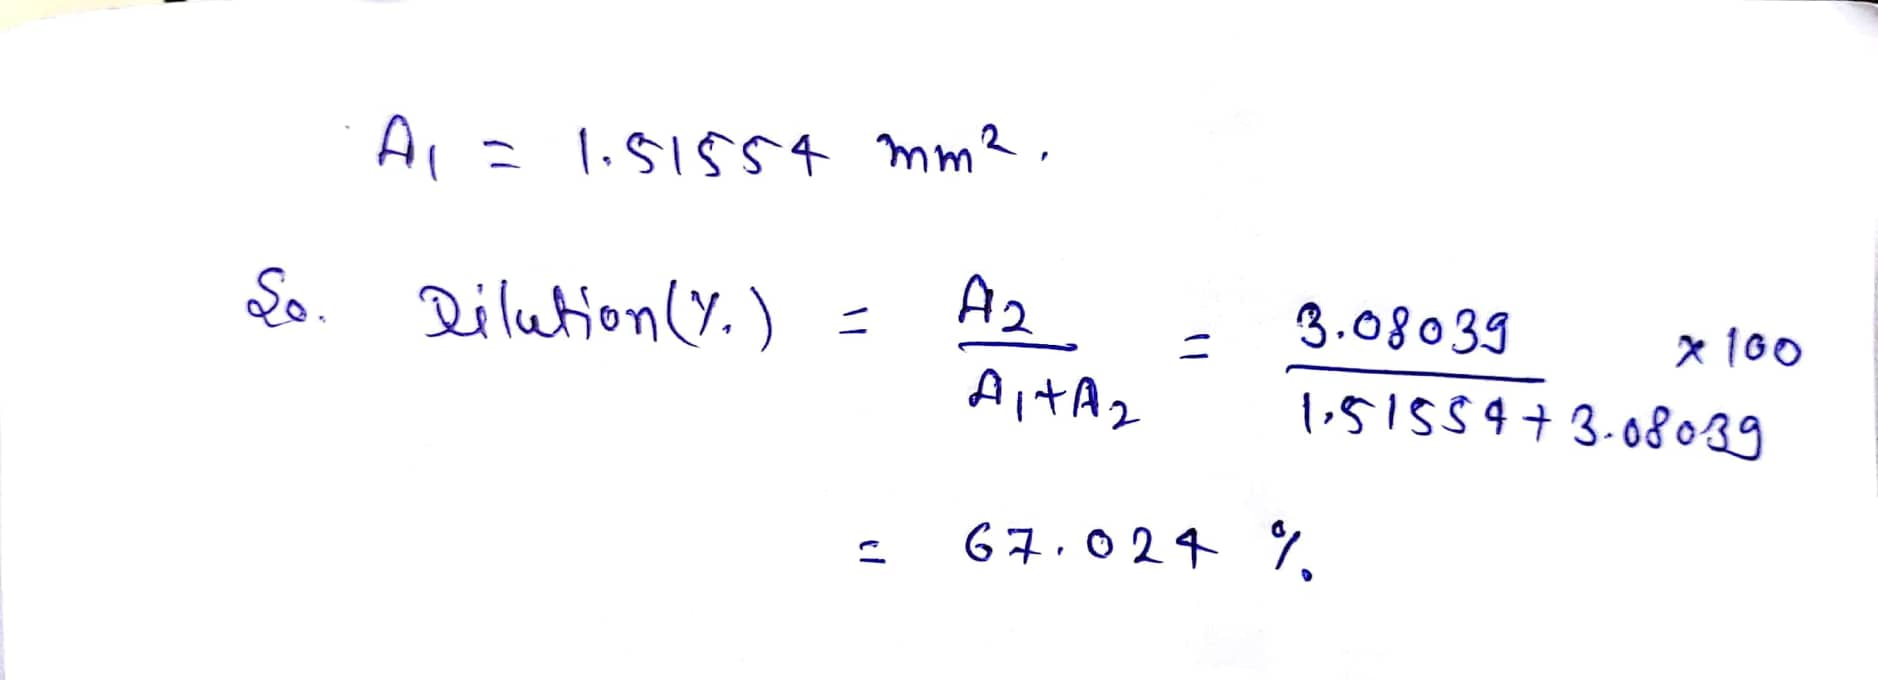 A₁ = 1.51554 mm².
So. Dilution(%) = A₂ / A₁+A₂ = 3.08039 / 1.51554+3.08039 × 100
= 67.024 %